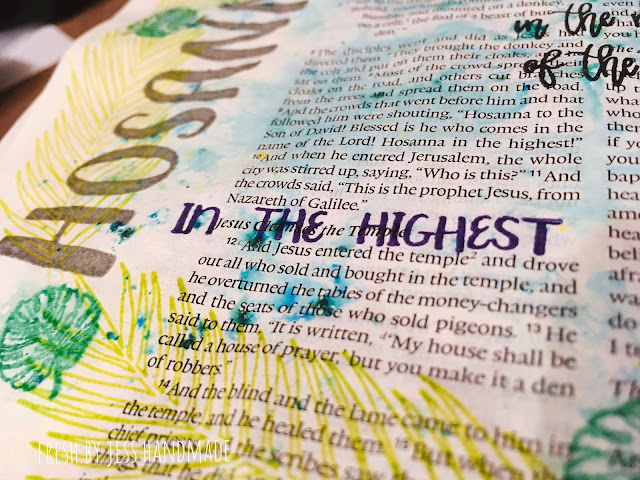 HOSANN
in the
of the
mounted on a donkey,
on a colt, the foal of a beast of bur-
den.'"
6 The disciples went and did as Jesus had
directed them. 7 They brought the donkey and
the colt and put on them their cloaks, and he
sat on them. 8 Most of the crowd spread their
cloaks on the road, and others cut branches
from the trees and spread them on the road.
9 And the crowds that went before him and that
followed him were shouting, "Hosanna to the
Son of David! Blessed is he who comes in the
name of the Lord! Hosanna in the highest!"
10 And when he entered Jerusalem, the whole
city was stirred up, saying, "Who is this?" 11 And
the crowds said, "This is the prophet Jesus, from
Nazareth of Galilee."
IN THE HIGHEST
Jesus Cleanses the Temple
12 And Jesus entered the temple² and drove
out all who sold and bought in the temple, and
he overturned the tables of the money-changers
and the seats of those who sold pigeons. 13 He
said to them, "It is written, d'My house shall be
called a house of prayer,' but you make it a den
of robbers."
14 And the blind and the lame came to him in
the temple, and he healed them. 15 But when the
chief and the scribes saw
that he did, and
FRESH BY JESS HANDMADE